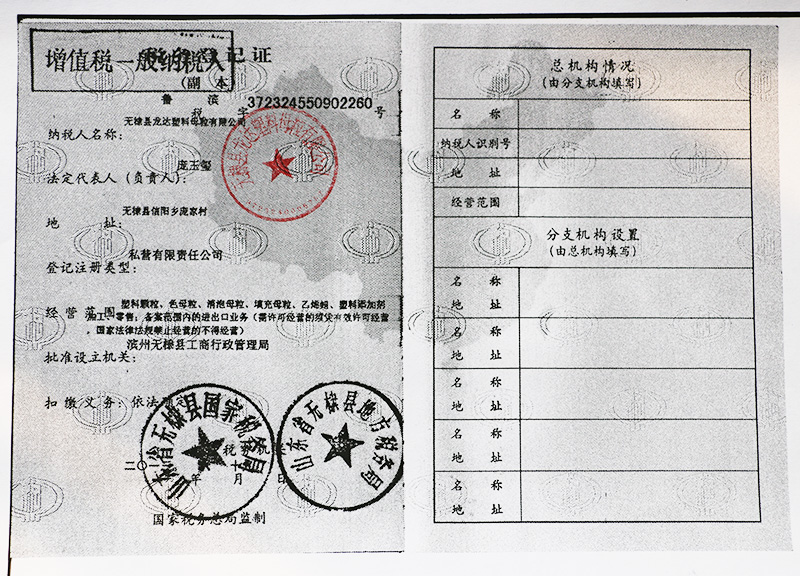 增值税一般纳税人
登记证
(副 本)
鲁 滨
税 字 372324550902260 号
无棣县龙达塑料母粒有限公司
纳税人名称:
庞玉玺
法定代表人(负责人):
无棣县信阳乡庞家村
地 址:
私营有限责任公司
登记注册类型:
塑料颗粒、色母粒、消泡母粒、填充母粒、乙烯蜡、塑料添加剂
经营范围
加工、零售;备案范围内的进出口业务(需许可经营的须凭有效许可经营
,国家法律法规禁止经营的不得经营)
滨州无棣县工商行政管理局
批准设立机关:
扣缴义务:依法
税务机
二〇 年 十 月 日
国家税务总局监制
无棣县龙达塑料母粒有限公司
山东省无棣县国家税务局
山东省无棣县地方税务局
总机构情况
(由分支机构填写)
名 称
纳税人识别号
地 址
经营范围
分支机构设置
(由总机构填写)
名 称
地 址
名 称
地 址
名 称
地 址
名 称
地 址
名 称
地 址